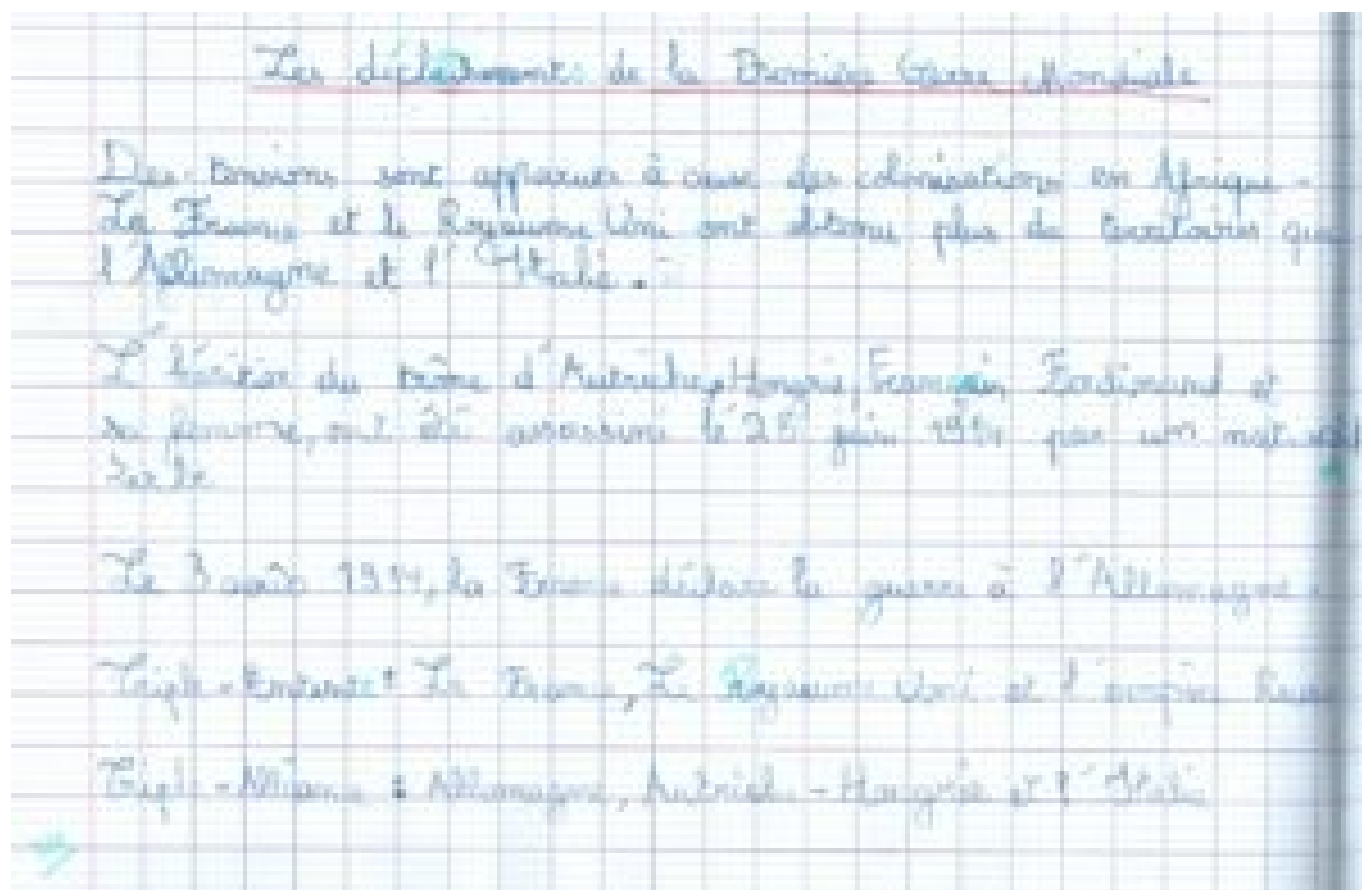 Les déclenchements de la Première Guerre Mondiale
Des tensions sont apparues à cause des colonisations en Afrique.
La France et le Royaume Uni ont obtenu plus de territoires que
l'Allemagne et l'Italie.
L'héritier du trône d'Autriche-Hongrie, François Ferdinand et
sa femme, ont été assassiné le 28 juin 1914 par un
Le 3 août 1914, la France déclare la guerre à l'Allemagne.
Triple-Entente : La France, Le Royaume Uni et l'empire Russe
Triple-Alliance : Allemagne, Autriche-Hongrie et l'Italie